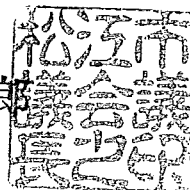 松江市
議会議
長之印